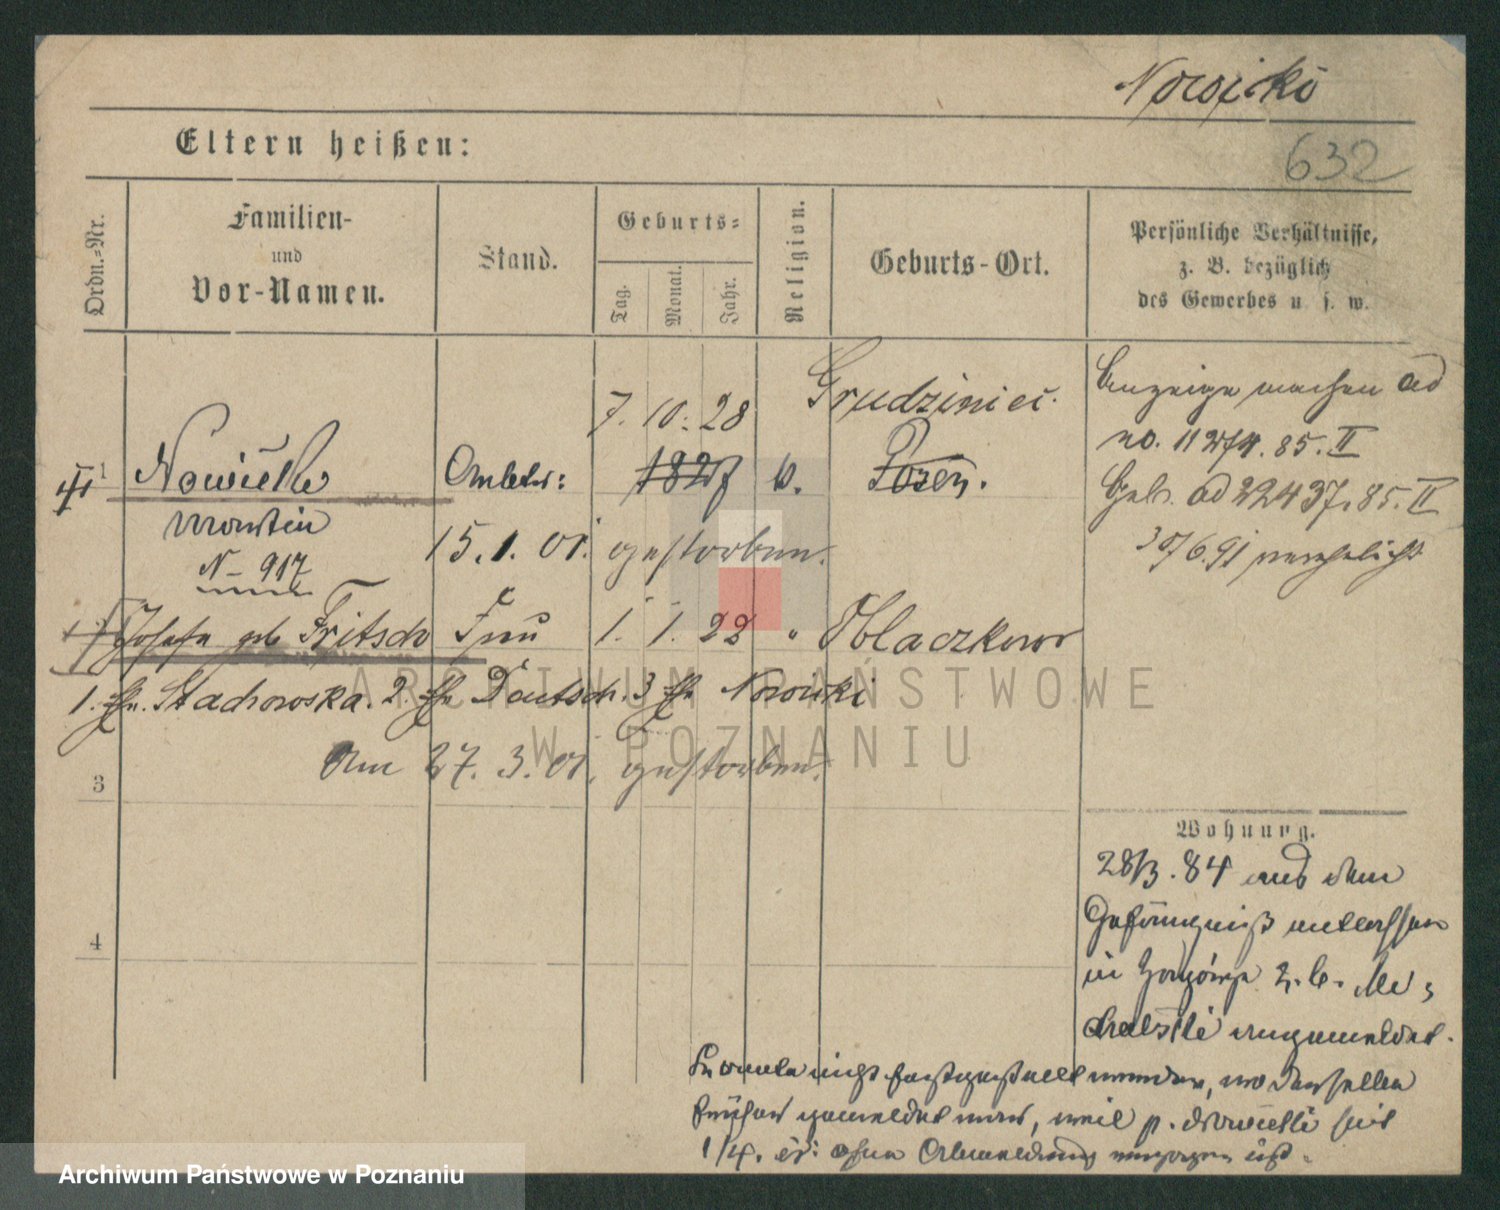 Nowicki
632
Eltern heißen:
Ordn.-Nr.
Familien-
und
Vor-Namen.
Stand.
Geburts-
Tag.
Monat.
Jahr.
Religion.
Geburts-Ort.
Persönliche Verhältnisse,
z. B. bezüglich
des Gewerbes u. s. w.
7. 10. 28 Grudziniec.
Anzeige machen ad
no. 85. II
1 Nowicki Arbeiter: k. Posen.
Geb. ad 22437. 85. II
Martin
15. 1. 01. gestorben.
N 917
verehelicht
Josefa geb Fritsch Frau 1. 1. 22 " Oblaczkowo
1. Stachowska. 2. Deutsch. 3 Nowicki
Am 27. 3. 01. gestorben.
3
4
Wohnung.
28/3. 84 aus dem
Gefängniß entlassen
in Zagórze z. b.
angemeldet.
Es konnte nicht festgestellt werden, wo derselbe
früher gemeldet war, weil p. Nowicki seit
1/4. ohne Abmeldung verzogen ist.
ARCHIWUM PAŃSTWOWE
W POZNANIU
Archiwum Państwowe w Poznaniu